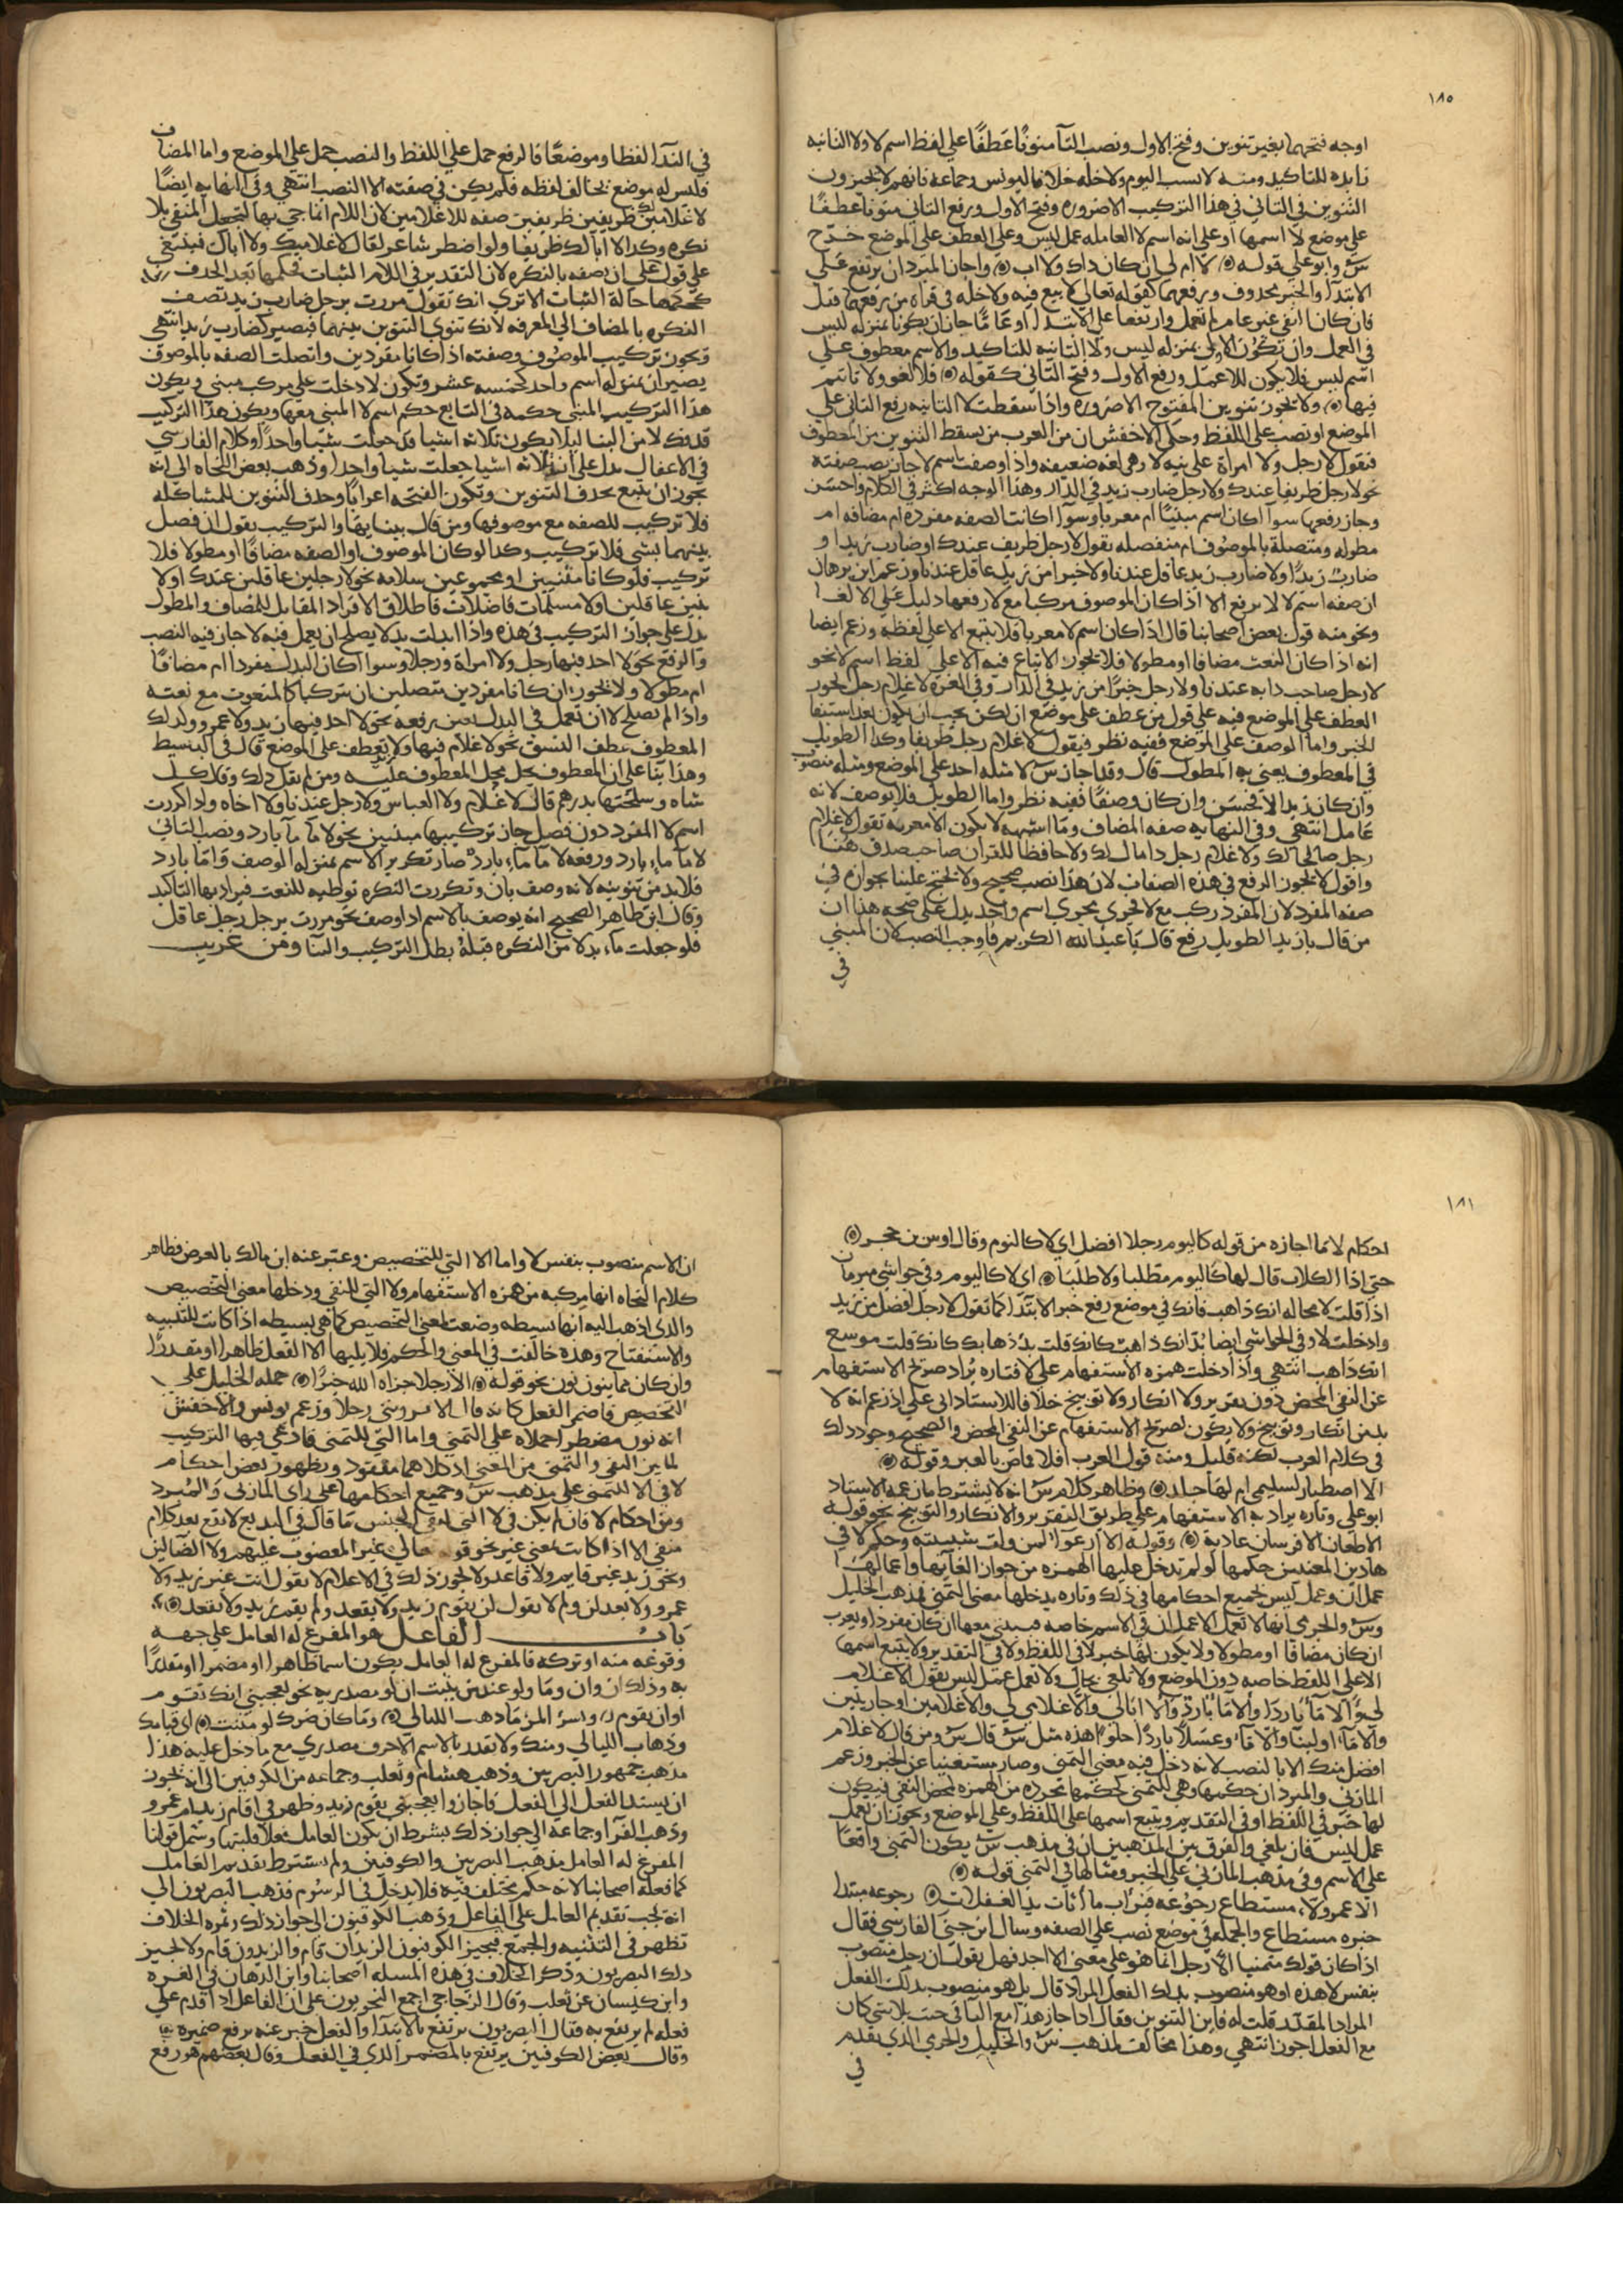 ١٨٥
اوجه فتحهما بغير تنوين وفتح الاول ونصب التا منونا عطفا على لفظ اسم لا ولا الثانيه
زايده للتاكيد ومنه لا نسب اليوم ولا خله خلافا ليونس وجماعه فانهم لا يجيزون
التنوين في الثاني في هذا التركيب الا ضروره وفتح الاول ورفع الثاني منونا عطفا
على موضع لا اسمها او على انه اسم لا العامله عمل ليس وعلى العطف على الموضع خرّج
س وابو علي قوله لا ام لي ان كان ذاك ولا اب واجاز المبرد ان يرتفع على
الابتدا والخبر محذوف ورفعهما كقوله تعالى لا بيع فيه ولا خله في قراة من رفعهما قيل
فان كان النفي غير عام لم تعمل وارتفعا على الابتدا او عاما جاز ان يكونا بمنزله ليس
في العمل وان تكون الاولى بمنزله ليس ولا الثانيه للتاكيد والاسم معطوف على
اسم ليس فلا يكون للا عمل ورفع الاول وفتح الثاني كقوله فلا لغو ولا تاثيم
فيها ولا يجوز تنوين المفتوح الا ضروره واذا سقطت لا الثانيه رفع الثاني على
الموضع او نصب على اللفظ وحكى الاخفش ان من العرب من يسقط التنوين من المعطوف
فنقول لا رجل ولا امراة على نيه لا وهي لغه ضعيفه واذا وصفت اسم لا جاز نصب صفته
نحو لا رجل ظريفا عندك ولا رجل ضارب زيد في الدار وهذا الوجه اكثر في الكلام واحسن
وجاز رفعها سوا اكان اسم مبنيا ام معربا وسوا اكانت الصفه مفرده ام مضافه ام
مطوله ومتصلة بالموصوف ام منفصله نقول لا رجل ظريف عندك او ضارب زيدا و
ضارب زيدا ولا ضارب زيد عاقل عندنا ولا خيرا من زيد عاقل عندنا وزعم ابن برهان
ان صفه اسم لا لا يرفع الا اذا كان الموصوف مركبا مع لا رفعها دليل على الالغا
ونحو منه قول بعض اصحابنا قال اذا كان اسم لا معربا فلا يتبع الا على لفظه وزعم ايضا
انه اذا كان النعت مضافا او مطولا فلا يجوز الاتباع فيه الا على لفظ اسم لا نحو
لا رجل صاحب دابه عندنا ولا رجل خيرا من زيد في الدار وفي الغره لا غلام رجل يجوز
العطف على الموضع فيه على قول من عطف على موضع ان لكن يجب ان يكون بعد استيفا
الخبر واما الوصف على الموضع ففيه نظر فيقول لا غلام رجل ظريفا وكذا الطويل
في المعطوف يعني به المطول قال وقد اجاز س لا مثله احد على الموضع ومثله منصوب
وان كان زيد الا فحسن وان كان وصفا ففيه نظر واما الطويل فلا يوصف لانه
عامل انتهى وفي النهايه صفه المضاف وما اشبهه لا يكون الا معربه تقول لا غلام
رجل صالحا لك ولا غلام رجل ذا مال لك ولا حافظا للقران صاحب صدق هنا
واقول لا يجوز الرفع في هذه الصفات لان هذا نصب صحيح ولا يحتج علينا بجوازه في
صفه المفرد لان المفرد ركب مع لا فجرى مجرى اسم واحد يدل على صحه هذا ان
من قال يا زيد الطويل رفع قال يا عبد الله الكريم فاوجب النصب لان المبني
في
في الندا لفظا وموضعا فالرفع حمل على اللفظ والنصب حمل على الموضع واما المضاف
فليس له موضع يخالف لفظه فلم يكن في صفته الا النصب انتهى وفي النهايه ايضا
لا غلامين لك ظريفين ظريفين صفه للاغلامين لان اللام انما جي بها لتجعل المنفي بلا
نكره وكذا لا ابا لك ظريفا ولو اضطر شاعر لقال لا غلاميك ولا اباك فينبغي
على قول على ان يصفه بالنكره لان التقدير في اللام الثبات فحكمها بعد الحذف
كحكمها حالة الثبات الا ترى انك تقول مررت برجل ضارب زيد تصف
النكره بالمضاف الى المعرفه لانك تنوي التنوين بينهما فيصير كضارب زيدا انتهى
ويجوز تركيب الموصوف وصفته اذا كانا مفردين واتصلت الصفه بالموصوف
يصيران بمنزله اسم واحد كخمسه عشر وتكون لا دخلت على مركب مبني ويكون
هذا التركيب المبني حكمه في التابع حكم اسم لا المبني معها ويكون هذا التركيب
قد فك لا من البنا ليلا يكون ثلاثه اشيا قد جعلت شيا واحدا وكلام الفارسي
في الاغفال يدل على ان ثلاثه اشيا جعلت شيا واحدا وذهب بعض النحاه الى انه
يجوز ان يتبع بحذف التنوين وتكون الفتحه اعرابا وحذف التنوين للمشاكله
فلا تركيب للصفه مع موصوفها ومن قال ببنايها والتركيب يقول ان فصل
بينهما بشي فلا تركيب وكذا لو كان الموصوف او الصفه مضافا او مطولا فلا
تركيب فلو كانا مثنيين او مجموعين سلامه نحو لا رجلين عاقلين عندك او لا
بنين عاقلين او لا مسلمات فاضلات فاطلاق الافراد المقابل للمضاف والمطول
يدل على جواز التركيب في هذه واذا ابدلت بدلا يصلح ان يعمل فيه لا جاز فيه النصب
والرفع نحو لا احد فيها رجل ولا امراة ورجلا وسوا اكان البدل مفردا ام مضافا
ام مطولا ولا يجوز ان كانا مفردين متصلين ان يتركبا كالمنعوت مع نعته
واذا لم يصلح لا ان تعمل في البدل تعين رفعه نحو لا احد فيها زيد ولا عمرو وكذلك
المعطوف عطف النسق نحو لا غلام فيها ولا يعطف على الموضع قال في البسيط
وهذا بنا على ان المعطوف يحل محل المعطوف عليه ومن لم يقل ذلك وقال كل
شاه وسخلتها بدرهم قال لا غلام ولا العباس ولا رجل عندنا ولا اخاه واذا كررت
اسم لا المفرد دون فصل جاز تركيبهما مبنيين نحو لا ما ما بارد ونصب الثاني
لا ما ماء بارد ورفعه لا ما ماء بارد صار تكرير الاسم بمنزله الوصف واما بارد
فلا بد من تنوينه لانه وصف ثان وتكررت النكره توطيه للنعت فيراد بها التاكيد
وقال ابن طاهر الصحيح انه يوصف بالاسم اذا وصف نحو مررت برجل رجل عاقل
فلو جعلت ماء بدلا من النكره قبلة بطل التركيب والبنا ومن غريب
١٨٦
احكام لا ما اجازه من قوله كاليوم رجلا افضل اي لا كاليوم وقال اوس بن حجر
حتى اذا الكلاب قال لها كاليوم مطلبا ولا طلبا اي لا كاليوم وفي حواشي مبرمان
اذا قلت لا محاله انك ذاهب فانك في موضع رفع خبر الابتدا كما تقول لا رجل افضل من زيد
وادخلت لا وفي الحواشي ايضا بد انك ذاهب كانك قلت بد ذهابك كانك قلت موسع
انك ذاهب انتهى واذا ادخلت همزه الاستفهام على لا فتاره يراد صريح الاستفهام
عن النفي المحض دون تقرير ولا انكار ولا توبيخ خلافا للاستاذ ابي علي اذ زعم انه لا
بد من انكار وتوبيخ ولا يكون لصريح الاستفهام عن النفي المحض والصحيح وجود ذلك
في كلام العرب لكنه قليل ومنه قول العرب افلا قماص بالعير وقوله
الا اصطبار لسلمى ام لها جلد وظاهر كلام س انه لا يشترط ما زعمه الاستاد
ابو علي وتاره يراد به الاستفهام على طريق التقرير والانكار والتوبيخ نحو قوله
الا طعان الا فرسان عاديه وقوله الا ارعوا لمن ولت شبيبته وحكم لا في
هاذين المعنيين حكمها لو لم تدخل عليها الهمزه من جواز الغايها واعمالها
عمل ان وعمل ليس لجميع احكامها في ذلك وتاره يدخلها معنى التمني فمذهب الخليل
وس والجرمي انها لا تعمل الا عمل ان في الاسم خاصه فيبنى معها ان كان مفردا ويعرب
ان كان مضافا او مطولا ولا يكون لها خبر لا في اللفظ ولا في التقدير ولا يتبع اسمها
الا على اللفظ خاصه دون الموضع ولا تلغى بحال ولا تعمل عمل ليس يقول الا غلام
لي والا ماء باردا والا ماء بارد والا ابا لي والا غلامي لي والا غلامين او جاريتين
والا ماء او لبنا والا ماء وعسلا باردا حلوا هذه مثل س قال س ومن قال لا غلام
افضل منك الا بالنصب لانه دخل فيه معنى التمني وصار مستغنيا عن الخبر وزعم
المازني والمبرد ان حكمها وهي للتمني كحكمها مجرده من الهمزه لمحض النفي فيكون
لها خبر في اللفظ او في التقدير ويتبع اسمها على اللفظ وعلى الموضع ويجوز ان تعمل
عمل ليس فان يلغى والفرق بين المذهبين ان في مذهب س يكون التمني واقعا
على الاسم وفي مذهب المازني على الخبر ومثالها في التمني قوله
الا عمر ولا مستطاع رجوعه فيراب ما اثات يد الغفلات رجوعه مبتدا
خبره مستطاع والجمله في موضع نصب على الصفه وسال ابن جني الفارسي فقال
اذا كان قولك متمنيا الا رجل انما هو على معنى الا احد فهل يقول ان رجل منصوب
بنفس لا هذه او هو منصوب بذلك الفعل المراد قال بل هو منصوب بذلك الفعل
المراد المقدر قلت له فاين التنوين وقال اذا جاز هذا مع البا في جيت بلا شي كان
مع الفعل اجوز انتهى وهذا مخالف لمذهب س والخليل والجرمي الذي تقدم
في
ان الاسم منصوب بنفس لا واما الا التي للتخصيص وعبر عنه ابن مالك بالعرض فظاهر
كلام النحاه انها مركبه من همزه الاستفهام ولا التي للنفي ودخلها معنى التخصيص
والذي اذهب اليه انها بسيطه وضعت لمعنى التخصيص كما هي بسيطه اذا كانت للتنبيه
والاستفتاح وهذه خالفت في المعنى والحكم فلا يليها الا الفعل ظاهرا او مقدرا
وان كان مما ينوز نون نحو قوله الا رجلا جزاه الله خيرا حمله الخليل على
التخصيص فاضمر الفعل كانه قال الا تروني رجلا وزعم يونس والاخفش
انه نون مضطرا حملاه على التمني واما التي للتمني فادعي فيها التركيب
لما بين النفي والتمني من المعنى اذ كلاهما مفقود ويظهور بعض احكام
لا في الا للتمني على مذهب س وجميع احكامها على راى المازني والمبرد
ومن احكام لا فان لم يكن في لا التي لنفي الجنس ما قال في البديع لا تقع بعد كلام
منفي الا اذا كانت بمعنى غير نحو قوله تعالى غير المغضوب عليهم ولا الضالين
ونحو زيد غير قايم ولا قاعد ولا يجوز ذلك في الاعلام لا تقول انت غير زيد ولا
عمرو ولا بعد لن ولم لا تقول لن يقوم زيد ولا يقعد ولم يقم زيد ولا يقعد
باب الفاعل هو المفرغ له العامل على جهه
وقوعه منه او تركه فالمفرغ له العامل يكون اسما ظاهرا او مضمرا او مقدرا
به وذلك ان وان وما ولو عند من يثبت ان لو مصدريه نحو يعجبني انك تقوم
او ان يقوم و يسر المرء ما ذهب الليالي وما كان ضرك لو مننت اي قيامك
وذهاب الليالي ومنك ولا يقدر بالاسم الا حرف مصدري مع ما دخل عليه هذا
مذهب جمهور البصريين وذهب هشام وثعلب وجماعه من الكوفيين الى انه يجوز
ان يسند الفعل الى الفعل فاجازوا يعجبني يقوم زيد وظهر لي اقام زيد ام عمرو
وذهب الفرا وجماعه الى جواز ذلك بشرط ان يكون العامل فعلا قلبيا وشمل قولنا
المفرغ له العامل مذهب البصريين والكوفيين ولم يشترط تقديم العامل
كما فعله اصحابنا لانه حكم مختلف فيه فلا يدخل في الرسوم فذهب البصريون الى
انه يجب تقديم العامل على الفاعل وذهب الكوفيون الى جواز ذلك وثمره الخلاف
تظهر في التثنيه والجمع فيجيز الكوفيون الزيدان قام والزيدون قام ولا يجيز
ذلك البصريون وذكر الخلاف في هذه المسله اصحابنا وابن الدهان في الغره
وابن كيسان عن ثعلب وقال الزجاجي اجمع النحويون على ان الفاعل اذا قدم على
فعله لم يرتفع به فقال البصريون يرتفع بالابتدا والفعل خبر عنه يرفع ضميره
وقال بعض الكوفيين يرتفع بالمضمر الذي في الفعل وقال بعضهم هو رفع